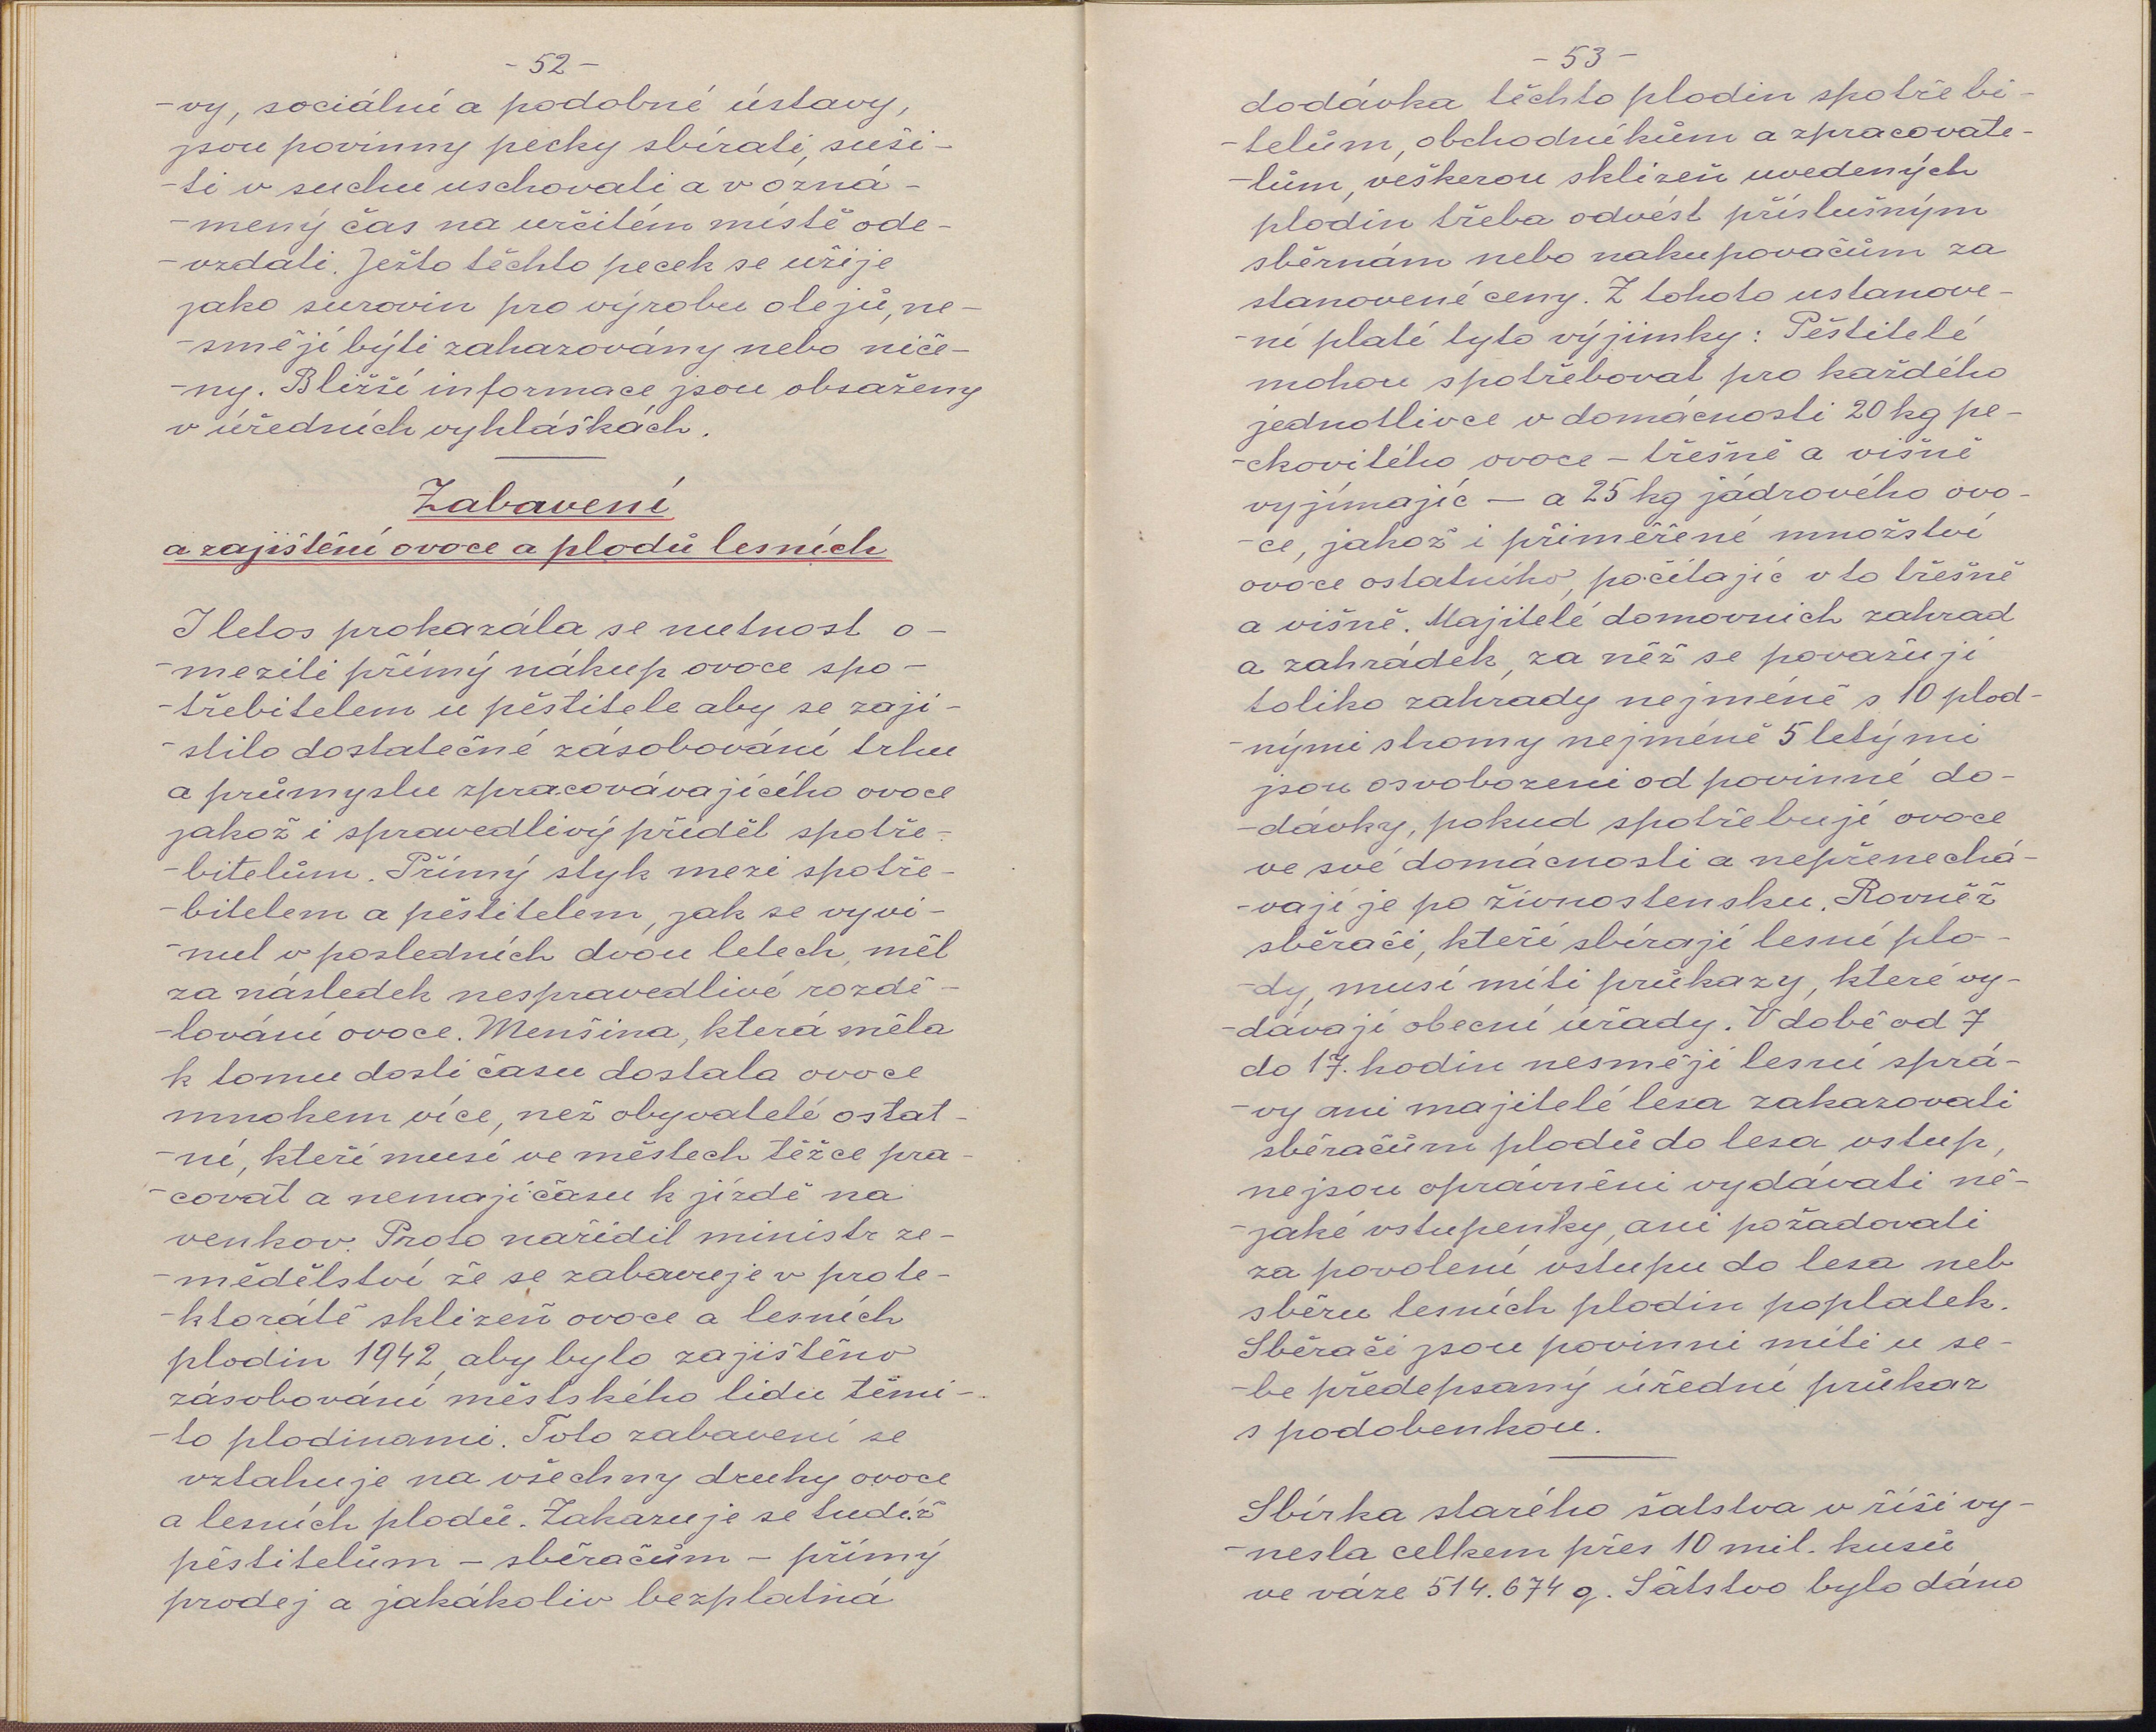 - 52 -
-vy, sociální a podobné ústavy,
jsou povinny pecky sbírati, suši-
-ti v suchu uschovati a v ozná-
-mený čas na určitém místě ode-
-vzdati. Ježto těchto pecek se užije
jako surovin pro výrobu olejů, ne-
-smějí býti zahazovány nebo niče-
-ny. Bližší informace jsou obsaženy
v úředních vyhláškách.
Zabavení
a zajištění ovoce a plodů lesních
I letos prokazála se nutnost o-
-meziti přímý nákup ovoce spo-
-třebitelem u pěstitele aby se zaji-
-stilo dostatečné zásobování trhu
a průmyslu zpracovávajícího ovoce
jakož i spravedlivý příděl spotře-
-bitelům. Přímý styk mezi spotře-
-bitelem a pěstitelem, jak se vyvi-
-nul v posledních dvou letech, měl
za následek nespravedlivé rozdě-
-lování ovoce. Menšina, která měla
k tomu dosti času dostala ovoce
mnohem více, než obyvatelé ostat-
-ní, kteří musí ve městech těžce pra-
-covat a nemají času k jízdě na
venkov. Proto nařídil ministr ze-
-mědělství že se zabavuje v prote-
-ktorátě sklizeň ovoce a lesních
plodin 1942, aby bylo zajištěno
zásobování městského lidu těmi-
-to plodinami. Toto zabavení se
vztahuje na všechny druhy ovoce
a lesních plodů. Zakazuje se tudíž
pěstitelům - sběračům - přímý
prodej a jakákoliv bezplatná
- 53 -
dodávka těchto plodin spotřebi-
-telům, obchodníkům a zpracovate-
-lům, veškerou sklizeň uvedených
plodin třeba odvést příslušným
sběrnám nebo nakupovačům za
stanovené ceny. Z tohoto ustanove-
-ní platí tyto výjimky: Pěstitelé
mohou spotřebovat pro každého
jednotlivce v domácnosti 20 kg pe-
-ckovitého ovoce - třešně a višně
vyjímajíc — a 25 kg jádrového ovo-
-ce, jakož i přiměřené množství
ovoce ostatního, počítajíc v to třešně
a višně. Majitelé domovních zahrad
a zahrádek, za něž se považují
toliko zahrady nejméně s 10 plod-
-nými stromy nejméně 5 letými
jsou osvobozeni od povinné do-
-dávky, pokud spotřebují ovoce
ve své domácnosti a nepřenechá-
-vají je po živnostensku. Rovněž
sběrači, kteří sbírají lesní plo-
-dy, musí míti průkazy, které vy-
-dávají obecní úřady. V době od 7
do 17. hodin nesmějí lesní sprá-
-vy ani majitelé lesa zakazovati
sběračům plodů do lesa vstup,
nejsou oprávněni vydávati ně-
-jaké vstupenky, ani požadovati
za povolení vstupu do lesa neb
sběru lesních plodin poplatek.
Sběrači jsou povinni míti u se-
-be předepsaný úřední průkaz
s podobenkou.
Sbírka starého šatstva v říši vy-
-nesla celkem přes 10 mil. kusů
ve váze 514.674 q. Šatstvo bylo dáno